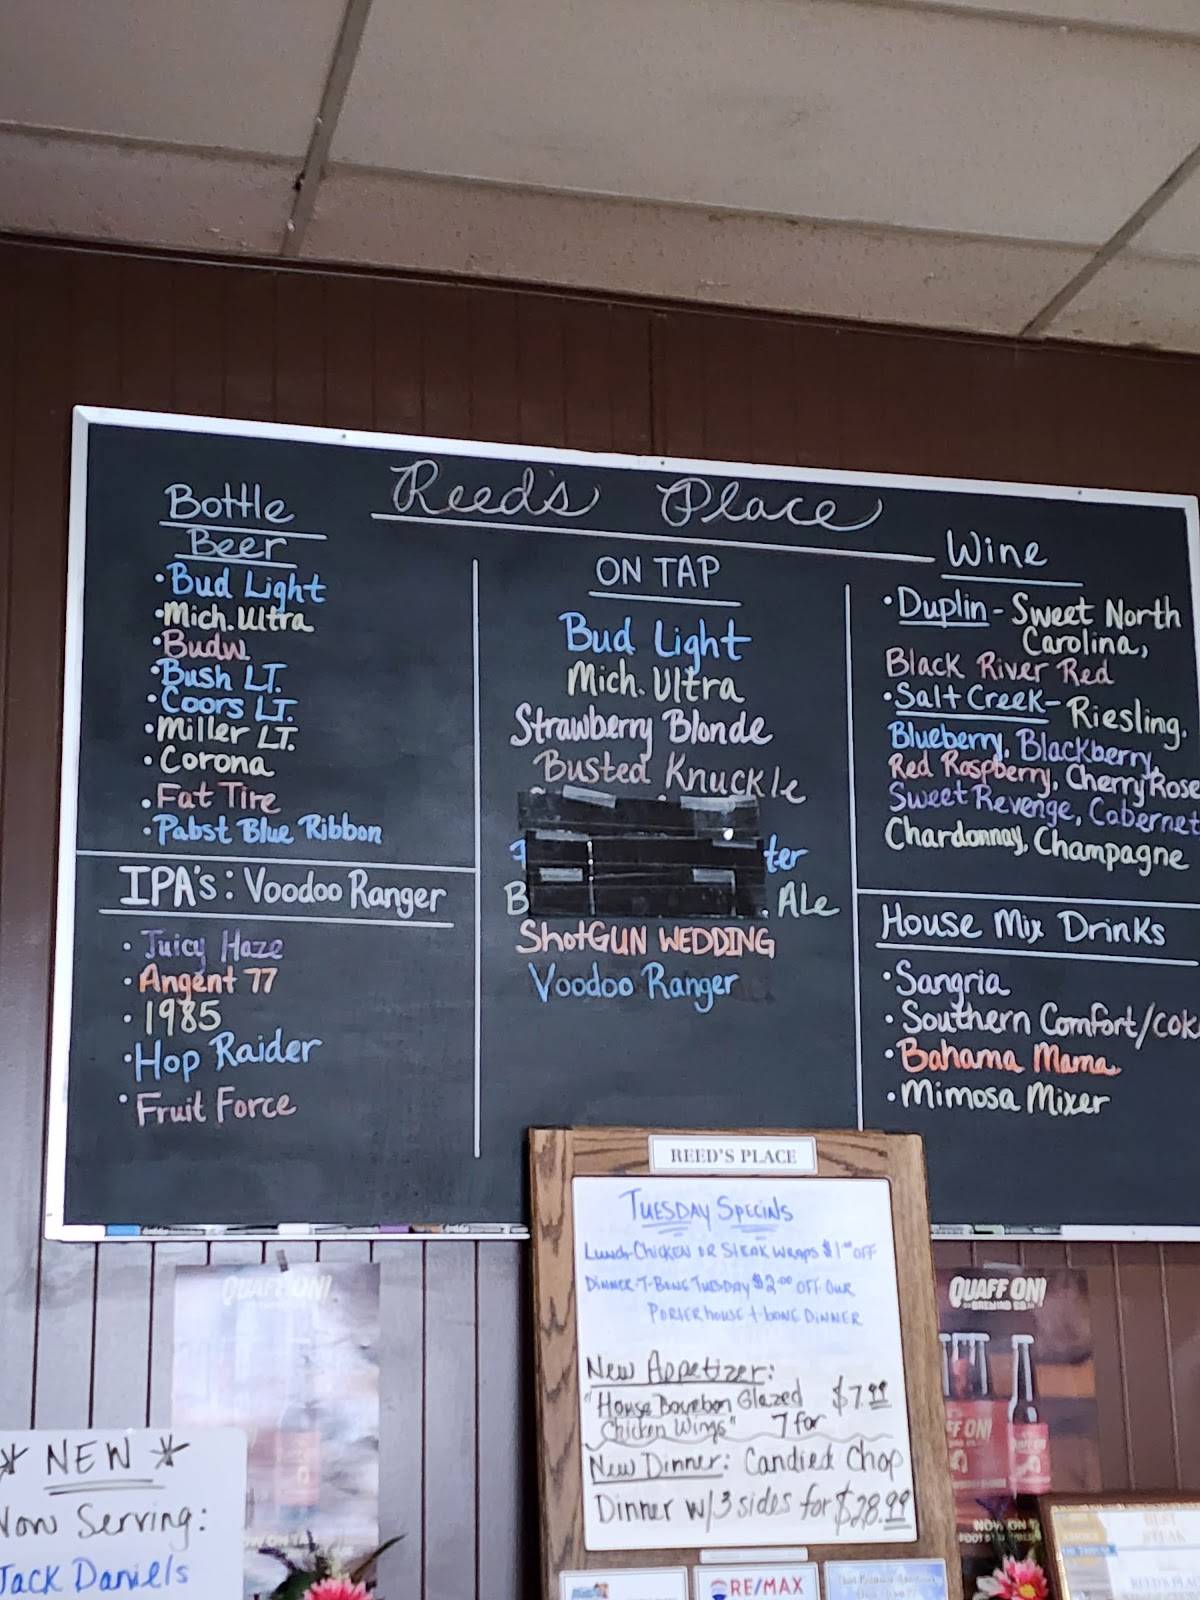 Reed's Place
Bottle
Beer
•Bud Light
•Mich. Ultra
•Budw
•Bush LT.
•Coors LT.
•Miller LT.
•Corona
•Fat Tire
•Pabst Blue Ribbon
IPA's: Voodoo Ranger
•Juicy Haze
•Angent 77
•1985
•Hop Raider
•Fruit Force
ON TAP
Bud Light
Mich. Ultra
Strawberry Blonde
Busted Knuckle
ter
B Ale
ShotGUN WEDDING
Voodoo Ranger
Wine
•Duplin - Sweet North
Carolina,
Black River Red
•Salt Creek - Riesling.
Blueberry, Blackberry,
Red Raspberry, Cherry Rose
Sweet Revenge, Cabernet
Chardonnay, Champagne
House Mix Drinks
•Sangria
•Southern Comfort/Cok
•Bahama Mama
•Mimosa Mixer
REED'S PLACE
TUESDAY SPECINLS
Lunch-Chicken or Steak wraps $1.00 off
Dinner-T-Bone Tuesday $2.00 off our
Porterhouse t-bone Dinner
New Appetizer:
"House Bourbon Glazed $7.99
Chicken Wings" 7 for
New Dinner: Candied Chop
Dinner w/3 sides for $28.99
QUAFF ON!
QUAFF ON!
BREWING CO.
FF ON!
NOW ON T
* NEW *
Now Serving:
Jack Daniels
RE/MAX
BEST
STEAK
REED'S PLAC